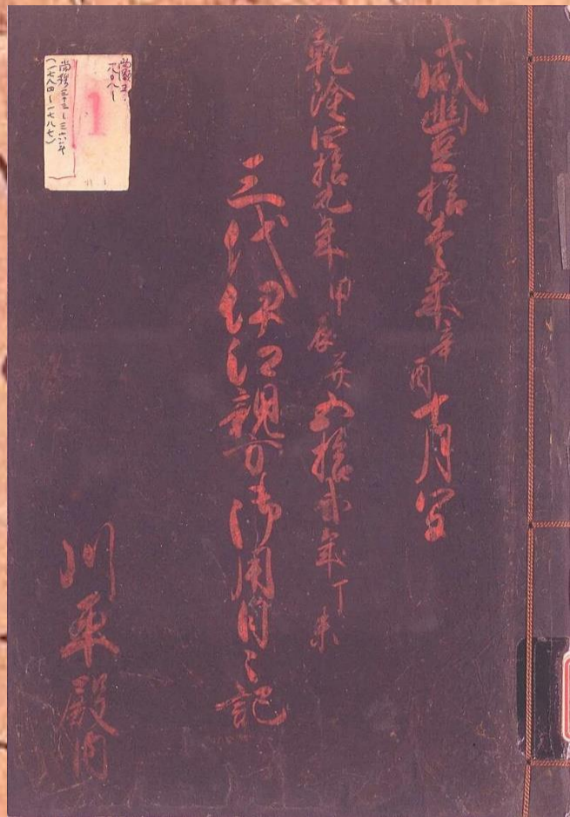 咸豊拾壱年辛酉十月写
乾隆四拾九年甲辰并五拾弐年丁未
三代伊江親方御用日々記
川平殿内
1
尚穆三十三〜三六年
(一七八四〜一七八七)